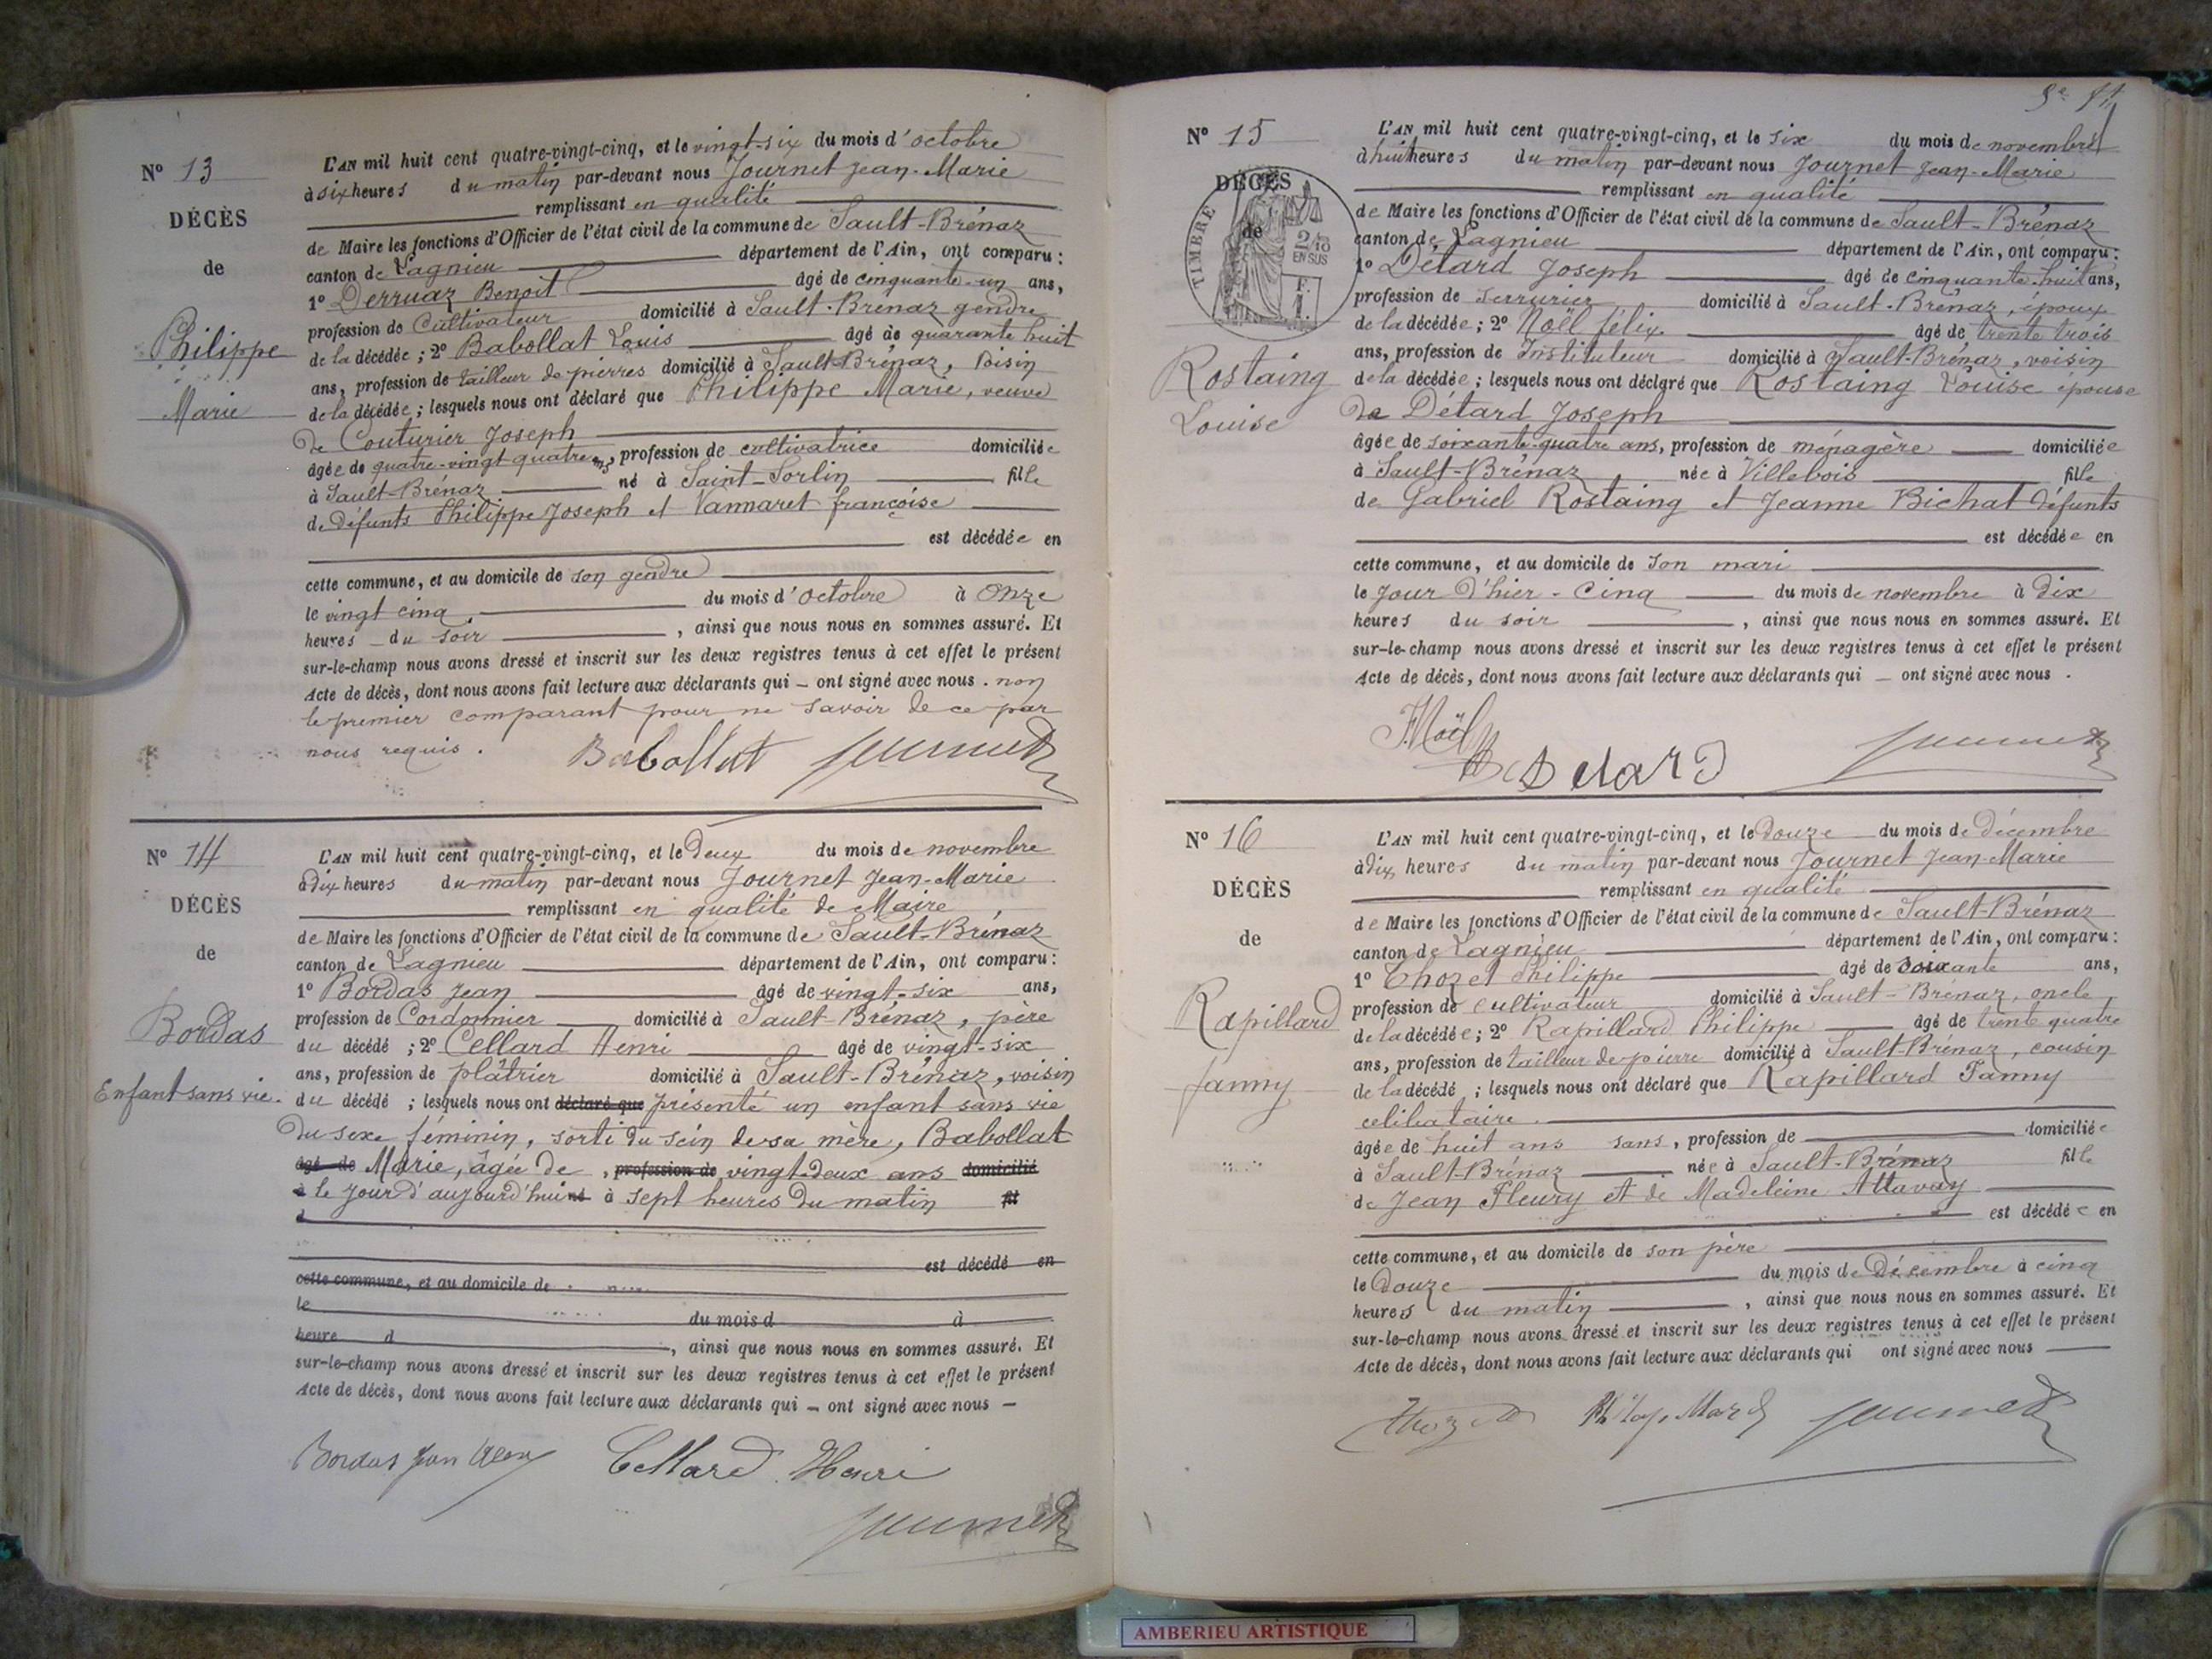 N° 13
DÉCÈS
de
Philippe
Marie
L'AN mil huit cent quatre-vingt-cinq, et le vingt-six du mois d'octobre
à six heures du matin par-devant nous Journet Jean-Marie
remplissant en qualité
de Maire les fonctions d'Officier de l'état civil de la commune de Sault-Brénaz
canton de Lagnieu département de l'Ain, ont comparu :
1° Derruaz Benoit âgé de cinquante-un ans,
profession de Cultivateur domicilié à Sault-Brénaz gendre
de la décédée ; 2° Babollat Louis âgé de quarante huit
ans, profession de tailleur de pierres domicilié à Sault-Brénaz, voisin
de la décédée ; lesquels nous ont déclaré que Philippe Marie, veuve
de Couturier Joseph
âgée de quatre-vingt quatre ans, profession de cultivatrice domiciliée
à Sault-Brénaz né à Saint-Sorlin fille
de défunts Philippe Joseph et Vannaret françoise
est décédée en
cette commune, et au domicile de son gendre
le vingt cinq du mois d'octobre à Onze
heures du soir , ainsi que nous nous en sommes assuré. Et
sur-le-champ nous avons dressé et inscrit sur les deux registres tenus à cet effet le présent
Acte de décès, dont nous avons fait lecture aux déclarants qui – ont signé avec nous . non
le premier comparant pour ne savoir de ce par
nous requis .
Babollat Journet
N° 14
DÉCÈS
de
Bordas
Enfant sans vie.
L'AN mil huit cent quatre-vingt-cinq, et le deux du mois de novembre
à dix heures du matin par-devant nous Journet Jean-Marie
remplissant en qualité de Maire
de Maire les fonctions d'Officier de l'état civil de la commune de Sault-Brénaz
canton de Lagnieu département de l'Ain, ont comparu :
1° Bordas Jean âgé de vingt-six ans,
profession de Cordonnier domicilié à Sault-Brénaz, père
du décédé ; 2° Cellard Henri âgé de vingt-six
ans, profession de plâtrier domicilié à Sault-Brénaz, voisin
du décédé ; lesquels nous ont déclaré que présenté un enfant sans vie
du sexe féminin, sorti du sein de sa mère, Babollat
âgé de Marie, âgée de , profession de vingt-deux ans domicilié
à le jour d'aujourd'hui né à sept heures du matin fil
d
est décédé en
cette commune, et au domicile de
le du mois d à
heure d , ainsi que nous nous en sommes assuré. Et
sur-le-champ nous avons dressé et inscrit sur les deux registres tenus à cet effet le présent
Acte de décès, dont nous avons fait lecture aux déclarants qui – ont signé avec nous –
Bordas Jean Cellard Henri
Journet
N° 15
DÉCÈS
de
TIMBRE
2/10
EN SUS
Rostaing
Louise
L'AN mil huit cent quatre-vingt-cinq, et le six du mois de novembre
à huit heures du matin par-devant nous Journet Jean-Marie
remplissant en qualité
de Maire les fonctions d'Officier de l'état civil de la commune de Sault-Brénaz
canton de Lagnieu département de l'Ain, ont comparu :
1° Détard Joseph âgé de cinquante-huit ans,
profession de serrurier domicilié à Sault-Brénaz, époux
de la décédée ; 2° Noël félix âgé de trente trois
ans, profession de Instituteur domicilié à Sault-Brénaz, voisin
de la décédée ; lesquels nous ont déclaré que Rostaing Louise épouse
de Détard Joseph
âgée de soixante-quatre ans, profession de ménagère domiciliée
à Sault-Brénaz née à Villebois fille
de Gabriel Rostaing et Jeanne Bichat défunts
est décédée en
cette commune, et au domicile de son mari
le jour d'hier - cinq du mois de novembre à dix
heures du soir , ainsi que nous nous en sommes assuré. Et
sur-le-champ nous avons dressé et inscrit sur les deux registres tenus à cet effet le présent
Acte de décès, dont nous avons fait lecture aux déclarants qui – ont signé avec nous .
F. Noël
Detard Journet
N° 16
DÉCÈS
de
Rapillard
fanny
L'AN mil huit cent quatre-vingt-cinq, et le douze du mois de décembre
à dix heures du matin par-devant nous Journet Jean-Marie
remplissant en qualité
de Maire les fonctions d'Officier de l'état civil de la commune de Sault-Brénaz
canton de Lagnieu département de l'Ain, ont comparu :
1° Thozet Philippe âgé de soixante ans,
profession de cultivateur domicilié à Sault-Brénaz, oncle
de la décédée ; 2° Rapillard Philippe âgé de trente quatre
ans, profession de tailleur de pierre domicilié à Sault-Brénaz, cousin
de la décédé ; lesquels nous ont déclaré que Rapillard Fanny
célibataire
âgée de huit ans sans , profession de domiciliée
à Sault-Brénaz née à Sault-Brénaz fille
de Jean Fleury et de Madeleine Attavay
est décédée en
cette commune, et au domicile de son père
le douze du mois de Décembre à cinq
heures du matin , ainsi que nous nous en sommes assuré. Et
sur-le-champ nous avons dressé et inscrit sur les deux registres tenus à cet effet le présent
Acte de décès, dont nous avons fait lecture aux déclarants qui ont signé avec nous
Thozet Journet
AMBERIEU ARTISTIQUE